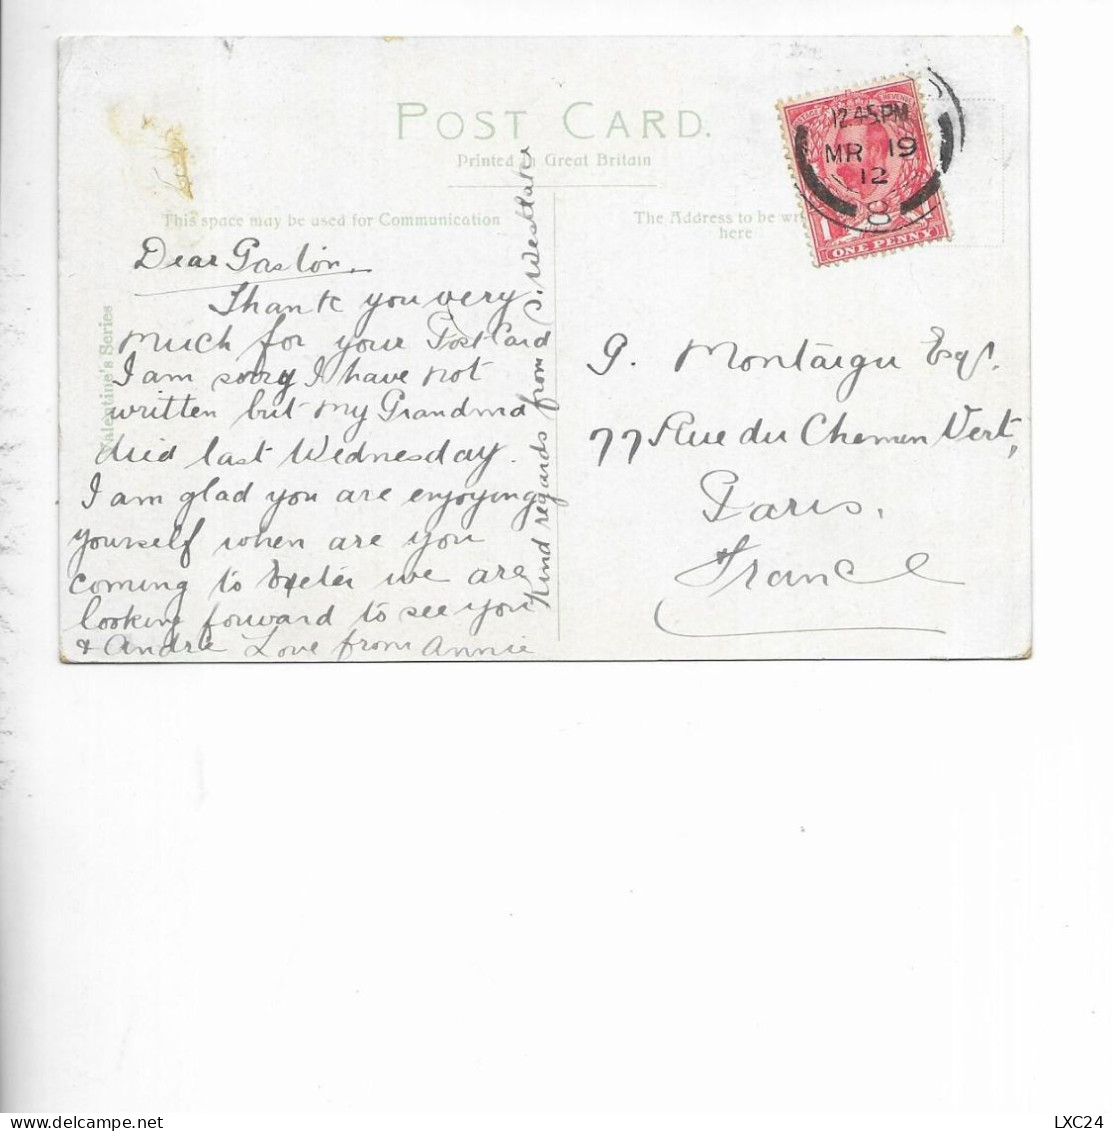 POST CARD.
Printed in Great Britain
This space may be used for Communication
The Address to be
here
Valentine's Series
12.45PM
MR 19
12
8
ONE PENNY
Dear Gaston.
Thank you very
much for your Post Card
I am sorry I have not
written but my Grandma
died last Wednesday.
I am glad you are enjoying
yourself when are you
coming to Exeter we are
looking forward to see you
& Andre Love from Annie
Kind regards from S. Westlake
G. Montaigu Esqr.
77 Rue du Chemin Vert,
Paris.
France
LXC24